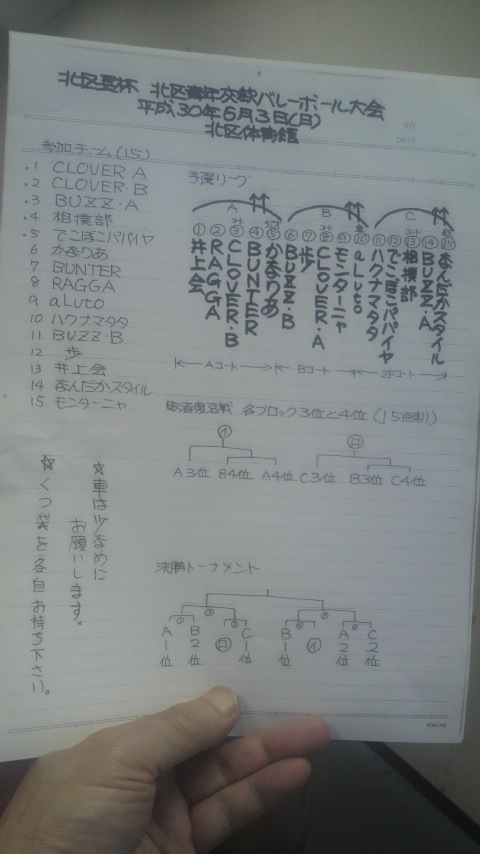 北区長杯 北区青年交歓バレーボール大会
平成30年6月3日(日)
北区体育館
NO
DATE
参加チーム(15)
.1 CLOVER A
.2 CLOVER B
.3 BUZZ・A
.4 相撲部
.5 でこぼこパパイヤ
6 かまりあ
7 BUNTER
8 RAGGA
9 aLuto
10 ハクナマタタ
11 BUZZ・B
12 歩
13 井上会
14 まんだかスタイル
15 モンターニャ
予選リーグ
A
B
C
① 井上会
② RAGGA
③ CLOVER・B
④ BUNTER
⑤ かまりあ
⑥ BUZZ・B
⑦ 歩
⑧ CLOVER・A
⑨ モンターニャ
⑩ aLuto
⑪ ハクナマタタ
⑫ でこぼこパパイヤ
⑬ 相撲部
⑭ BUZZ・A
⑮ まんだかスタイル
Aコート
Bコート
2Fコート
敗者復活戦 各ブロック3位と4位(15点制)
イ
ロ
A3位 B4位 A4位 C3位 B3位 C4位
☆車は少なめに
お願いします。
☆くつ袋を各自お持ち下さい。
決勝トーナメント
A1位
B2位
ロ
C1位
B1位
イ
A2位
C2位